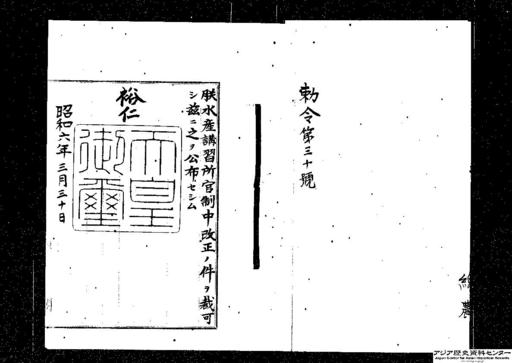 勅令第三十號
朕水産講習所官制中改正ノ件ヲ裁可
シ茲ニ之ヲ公布セシム
裕仁
天皇
御璽
昭和六年三月三十日
農
アジア歴史資料センター
Japan Center for Asian Historical Records